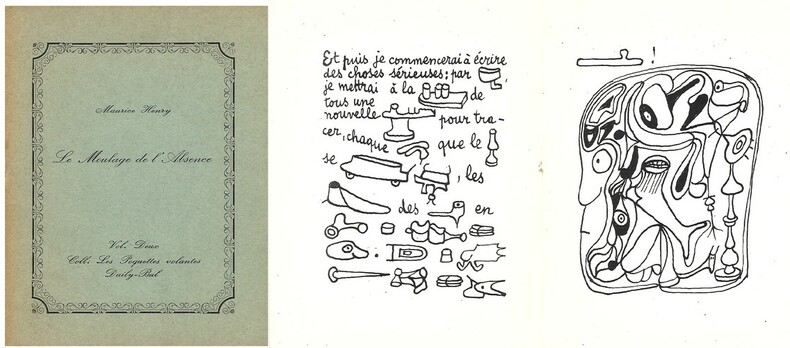 Maurice Henry
Le Moulage de l'Absence
Vol. Deux
Coll. Les Poquettes volantes
Daily-Bul
Et puis je commencerai à écrire
des choses sérieuses; par ,
je mettrai à la de
tous une
nouvelle pour tra-
cer, chaque que le
se , les
des en
.
!